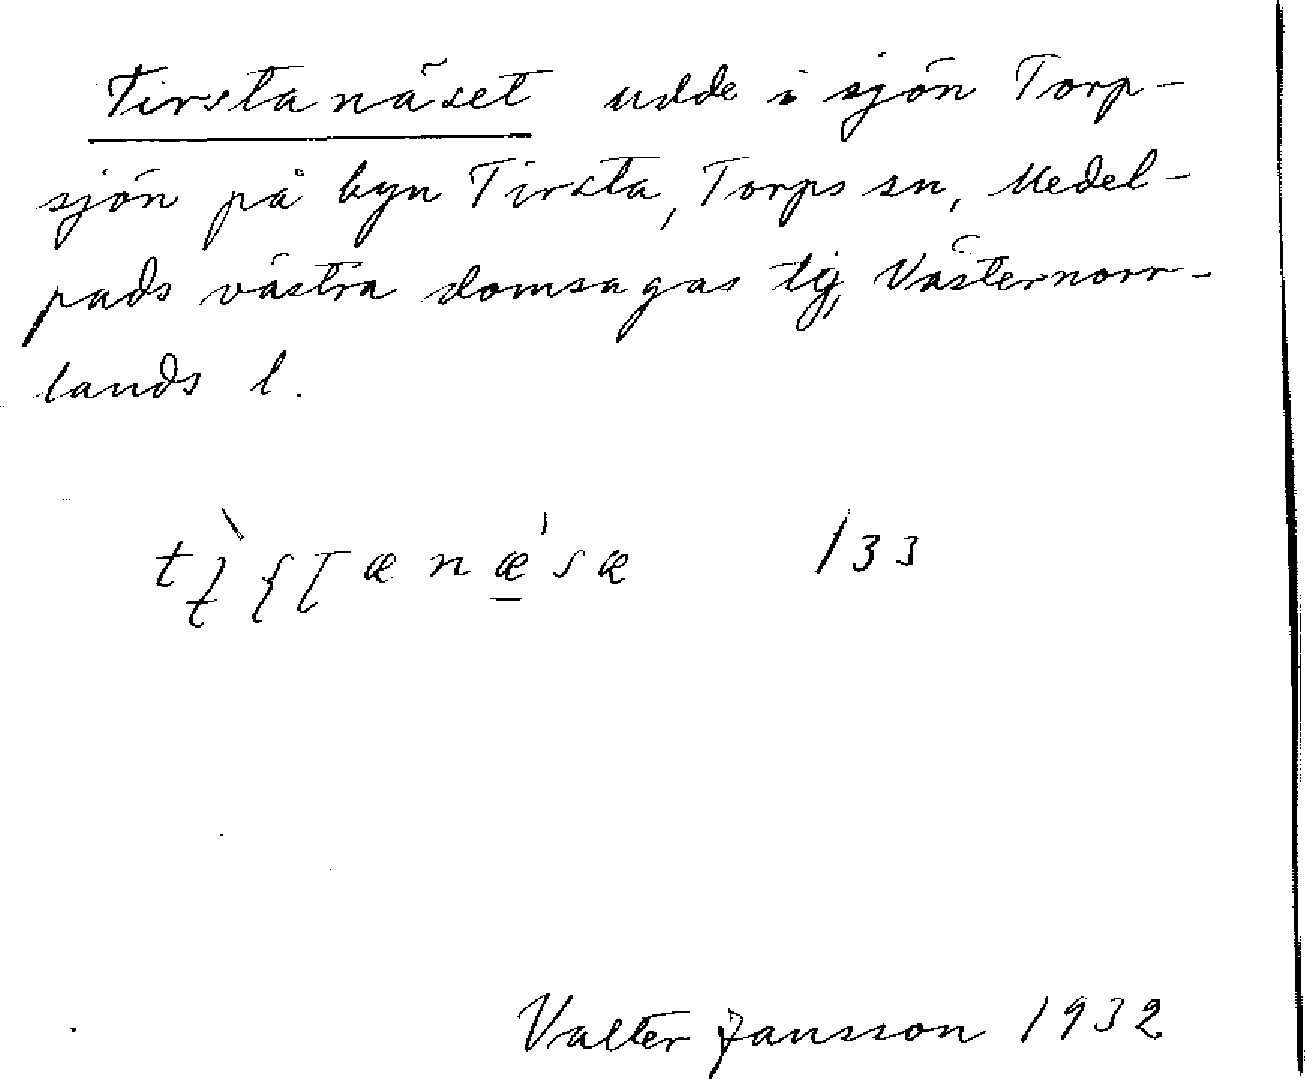 Tirstanäset udde i sjön Torp-
sjön på byn Tirsta, Torps sn, Medel-
pads västra domsagas tg, Västernorr-
lands l.
133
Valter Jansson 1932